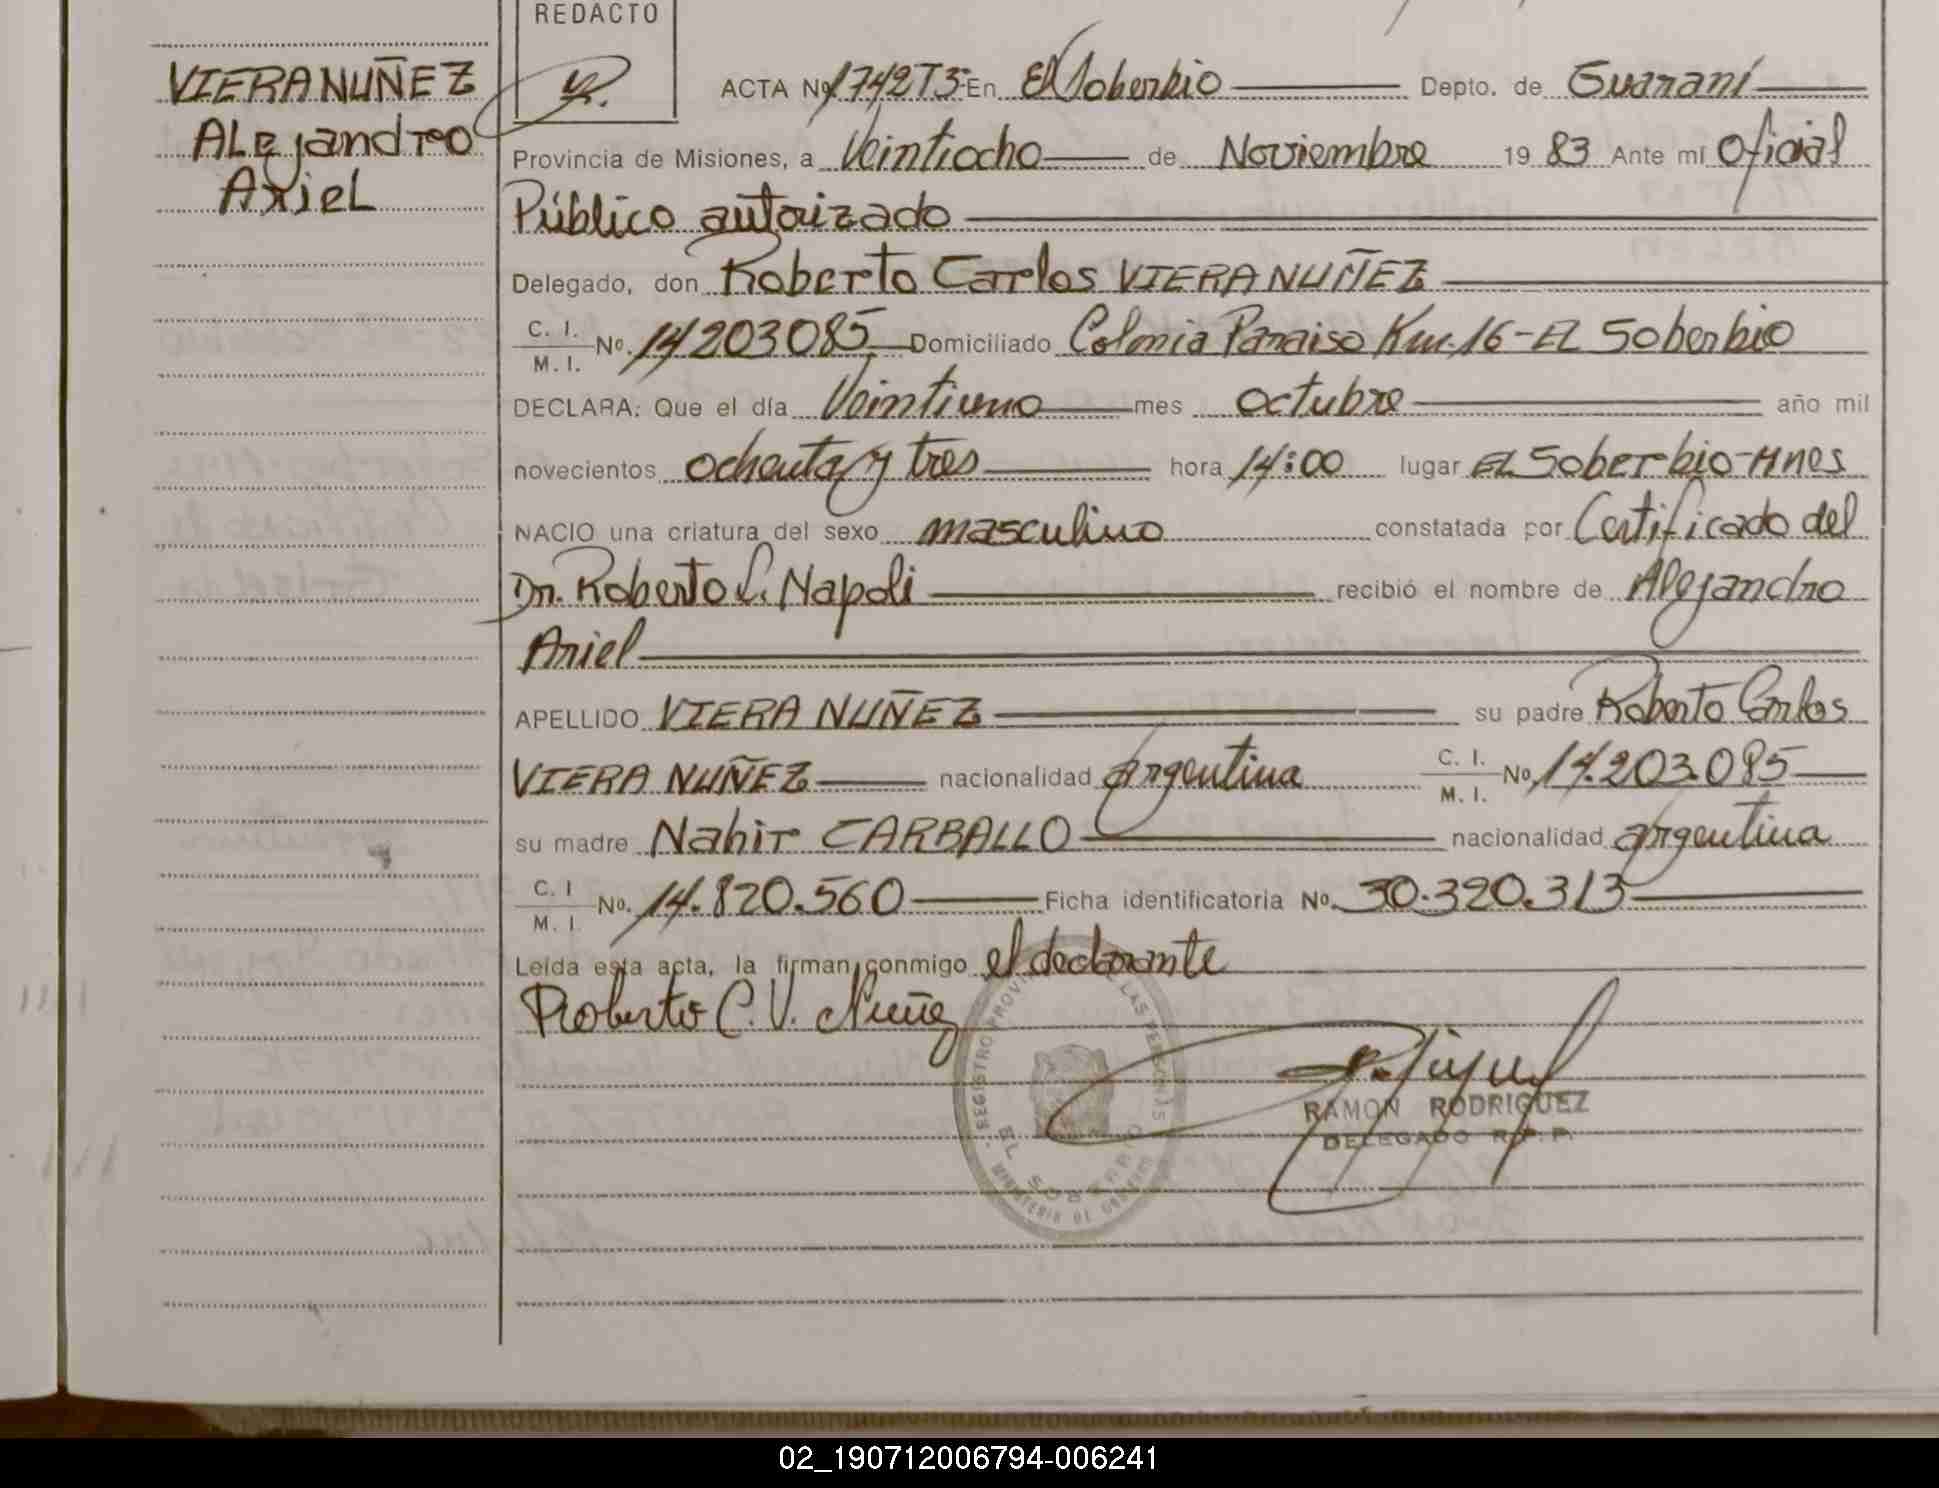 REDACTO
VIERA NUÑEZ
Alejandro
Ariel
ACTA Nº 1742T3- En El Soberbio Depto. de Guaraní
Provincia de Misiones, a Veintiocho de Noviembre 19 83 Ante mí Oficial
Público autorizado
Delegado, don Roberto Carlos VIERA NUÑEZ
C. I.
M. I. No. 14203085 Domiciliado Colonia Paraiso Km.16-El Soberbio
DECLARA: Que el día Veintiuno mes octubre año mil
novecientos ochenta y tres hora 14:00 lugar El Soberbio-Mnes
NACIO una criatura del sexo masculino constatada por Certificado del
Dr. Roberto L. Napoli recibió el nombre de Alejandro
Ariel
APELLIDO VIERA NUÑEZ su padre Roberto Carlos
VIERA NUÑEZ nacionalidad argentina C. I.
M. I. No. 14.203.085
su madre Nahir CARBALLO nacionalidad argentina
C. I
M. I. No. 14.820.560 Ficha identificatoria No. 30.320.313
Leída esta acta, la firman conmigo el declarante
Roberto C. V. Nuñez
REGISTRO PROVINCIAL DE LAS PERSONAS
EL SOBERBIO
MINISTERIO DE GOBIERNO
RAMON RODRIGUEZ
DELEGADO R. P. P.
02_190712006794-006241